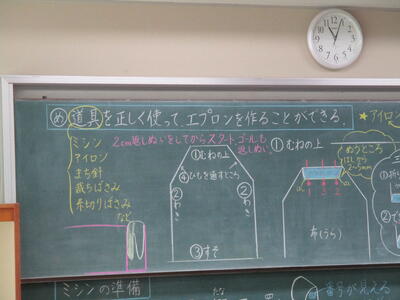 め 道具を正しく使って、エプロンを作ることができる。
ミシン
アイロン
まち針
裁ちばさみ
糸切りばさみ
など
2cm返しぬいをしてからスタート、ゴールも
返しぬい
①むねの上
④ひもを通すところ
②わき
②わき
③すそ
①むねの上
ぬうところ
はしから
2~5mm
布(うら)
★アイロ
ミシンの準備
番号が見える